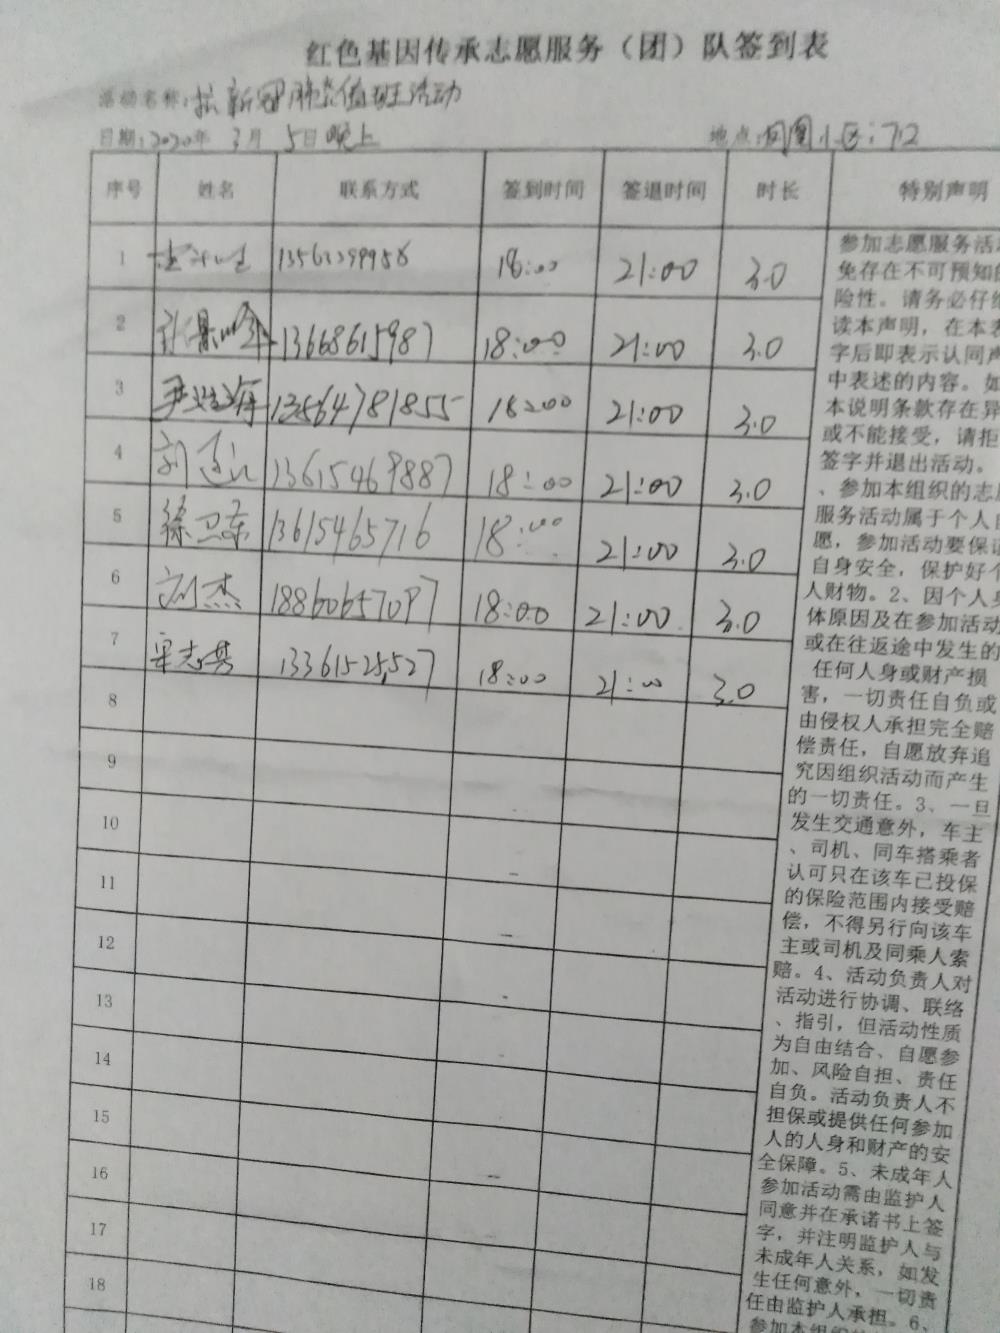 红色基因传承志愿服务（团）队签到表
活动名称：抗新冠肺炎值班活动
日期：2020年 3月 5日晚上 地点：凤凰小区：712
序号 姓名 联系方式 签到时间 签退时间 时长 特别声明
1 18:00 21:00 3.0
2 13668615987 18:00 21:00 3.0
3 13564781855 18:00 21:00 3.0
4 13615469887 18:00 21:00 3.0
5 徐卫东 13615465716 18:00 21:00 3.0
6 刘杰 18860657097 18:00 21:00 3.0
7 13361525527 18:00 21:00 3.0
8
9
10
11
12
13
14
15
16
17
18
参加志愿服务活
免存在不可预知的
险性。请务必仔细
读本声明，在本表
字后即表示认同声
中表述的内容。如
本说明条款存在异
或不能接受，请拒
签字并退出活动。
、参加本组织的志愿
服务活动属于个人自
愿，参加活动要保证
自身安全，保护好个
人财物。2、因个人身
体原因及在参加活动
或在往返途中发生的
任何人身或财产损
害，一切责任自负或
由侵权人承担完全赔
偿责任，自愿放弃追
究因组织活动而产生
的一切责任。3、一旦
发生交通意外，车主
、司机、同车搭乘者
认可只在该车已投保
的保险范围内接受赔
偿，不得另行向该车
主或司机及同乘人索
赔。4、活动负责人对
活动进行协调、联络
、指引，但活动性质
为自由结合、自愿参
加、风险自担、责任
自负。活动负责人不
担保或提供任何参加
人的人身和财产的安
全保障。5、未成年人
参加活动需由监护人
同意并在承诺书上签
字，并注明监护人与
未成年人关系，如发
生任何意外，一切责
任由监护人承担。6、
参加本组织